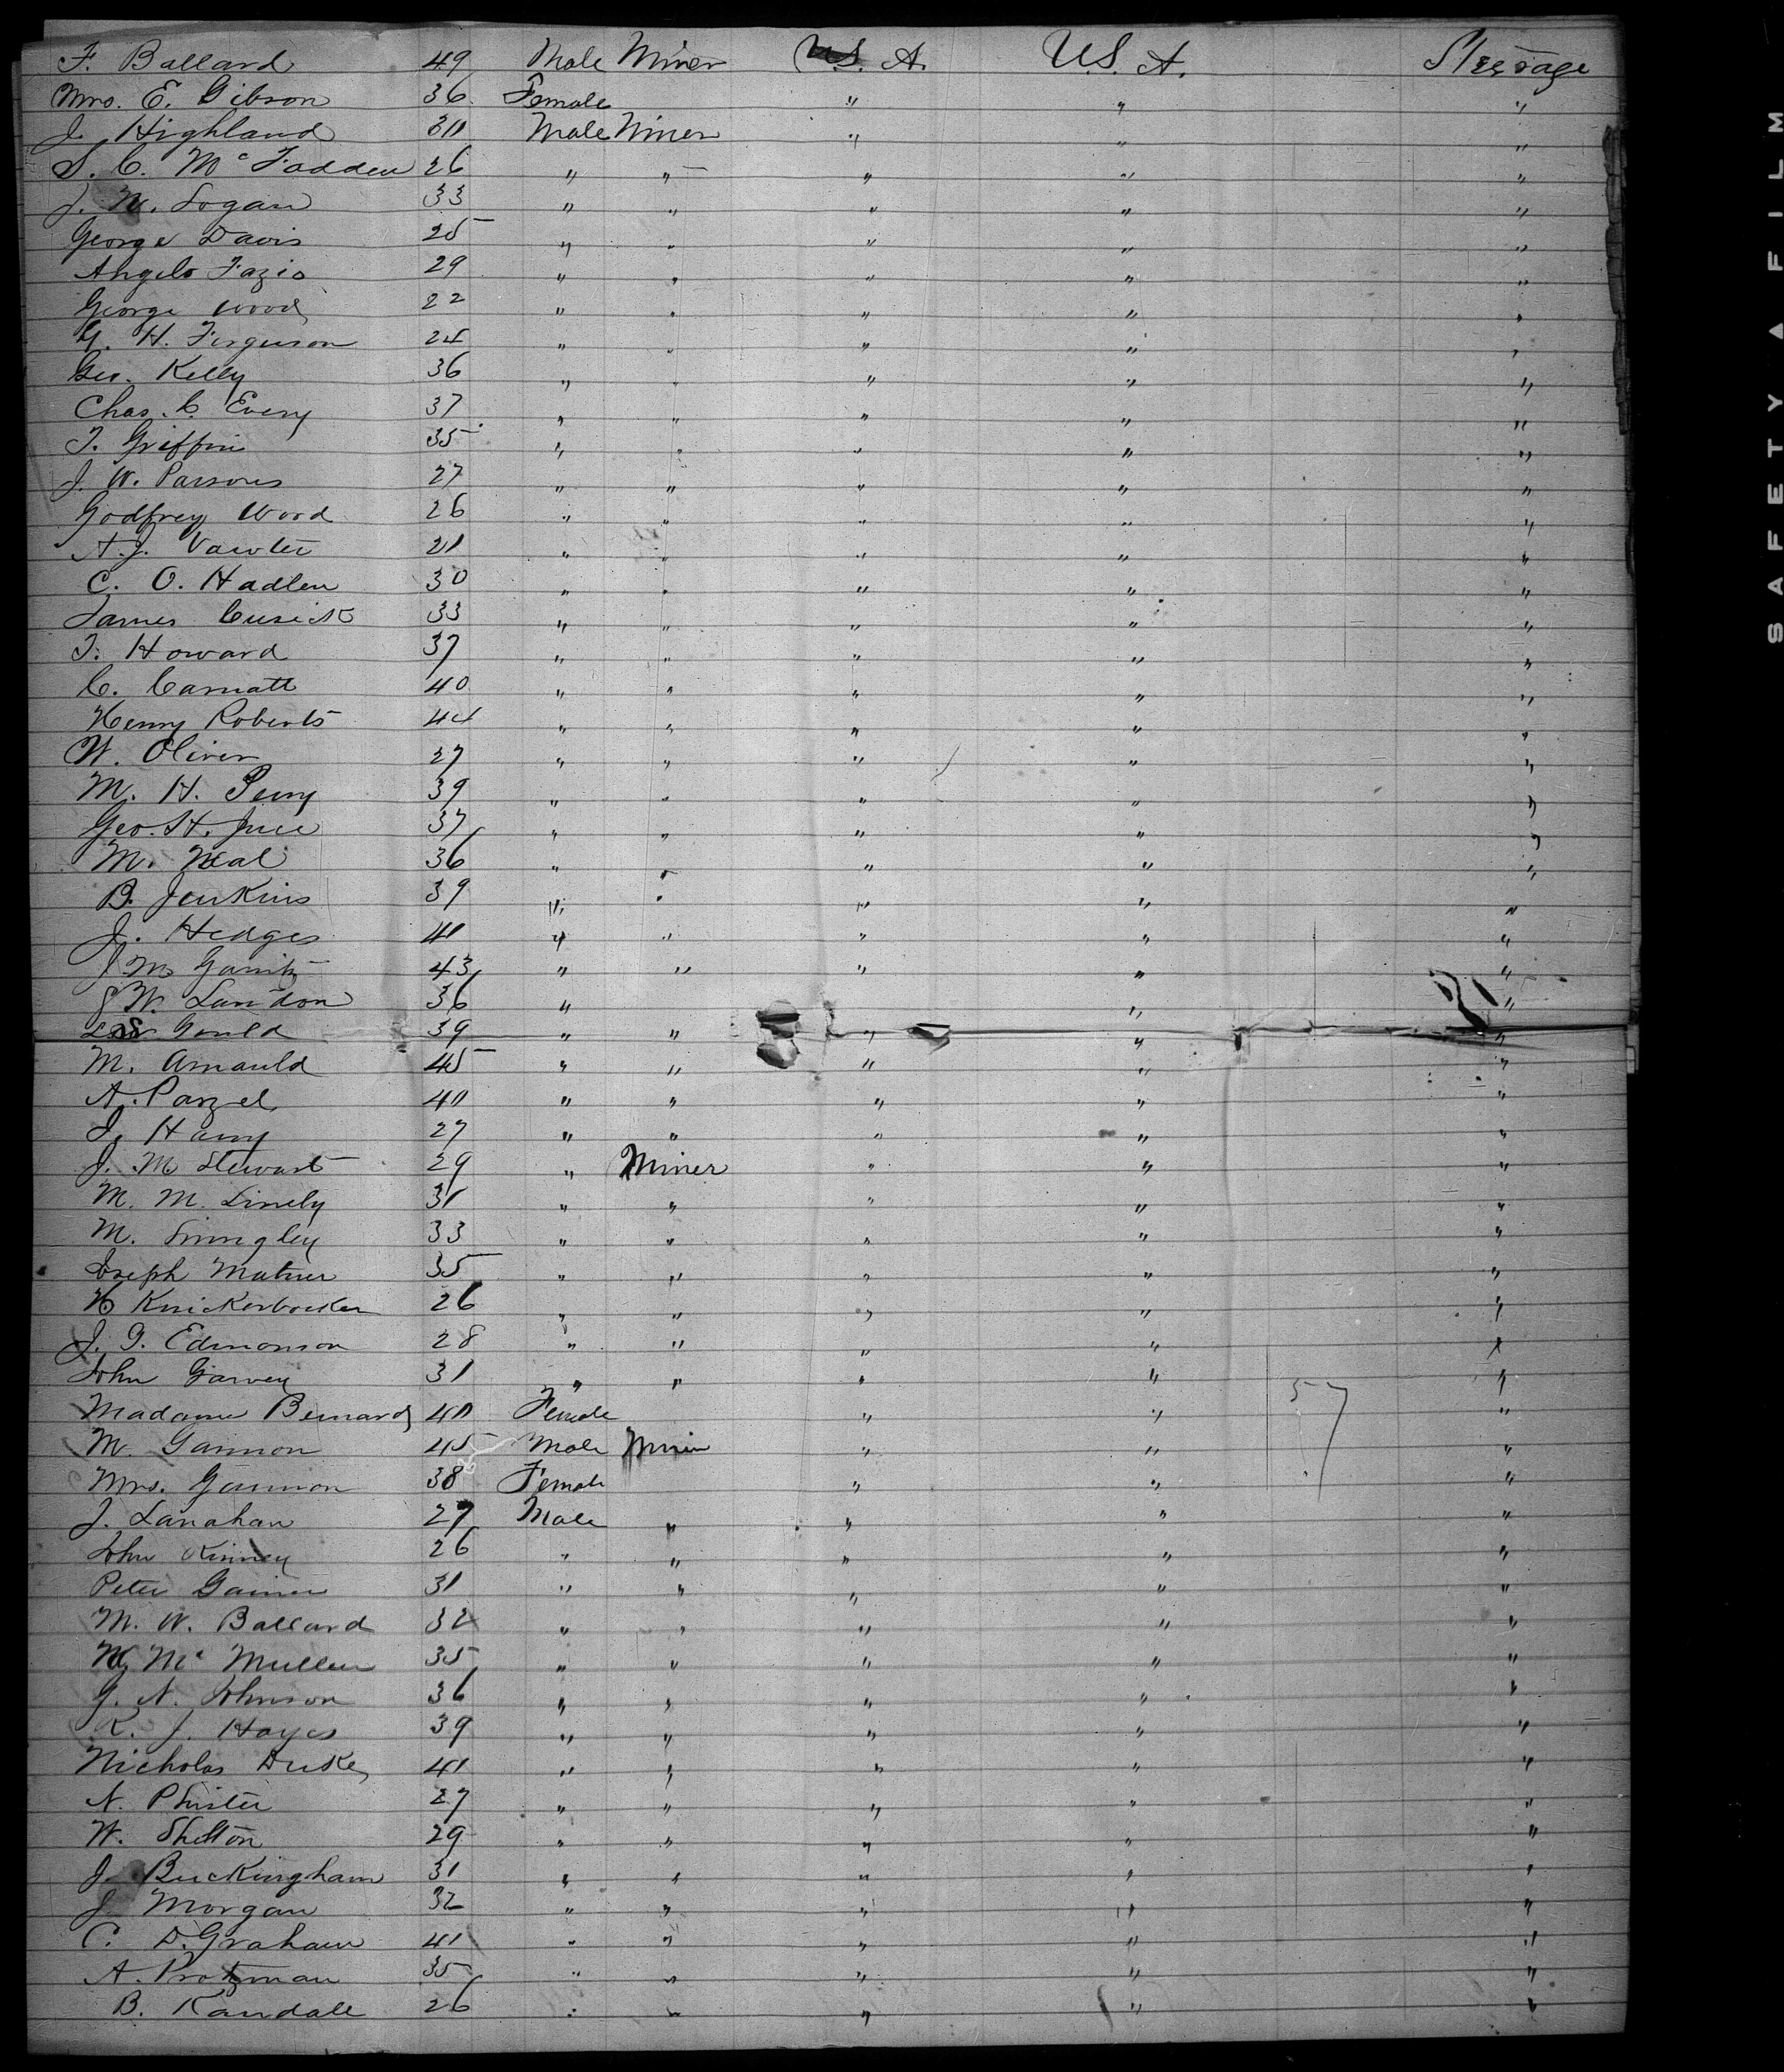 F. Ballard 49 Male Miner U.S. A. U.S. A. Steerage
Mrs. E. Gibson 36 Female " " "
J. Highland 30 Male Miner " " "
S. C. Mc Fadden 26 " " " " "
J. M. Logan 33 " " " " "
George Davis 25 " " " " "
Angelo Fazio 29 " " " " "
George Wood 22 " " " " "
G. H. Ferguson 24 " " " " "
Geo. Kelly 36 " " " " "
Chas. C. Every 37 " " " " "
T. Griffin 35 " " " " "
J. W. Parsons 27 " " " " "
Godfrey Wood 26 " " " " "
A. J. Vawter 21 " " " " "
C. O. Hadlen 30 " " " " "
James Cusick 33 " " " " "
T. Howard 37 " " " " "
C. Carnatt 40 " " " " "
Henry Roberts 44 " " " " "
W. Oliver 27 " " " " "
M. H. Perry 39 " " " " "
Geo. H. 37 " " " " "
M. Neal 36 " " " " "
B. Jenkins 39 " " " " "
J. Hedges 41 " " " " "
J M 43 " " " " "
W. Landon 36 " " " "
Gould 39 " " " " "
M. Arnauld 45 " " " " "
A. Parzel 40 " " " " "
J. Harry 27 " " " " "
J. M Stewart 29 " Miner " " "
M. M. Linely 31 " " " " "
M. 33 " " " " "
Joseph Matner 35 " " " " "
H Knickerbocker 26 " " " " "
J. G. Edmonson 28 " " " " "
John Garvey 31 " " " " "
Madame Bernard 40 Female " " 57 "
M. Gannon 45 Male Miner " " "
Mrs. Gannon 38 Female " " "
J. Lanahan 27 Male " " " "
John Kinney 26 " " " " "
Peter Gainer 31 " " " " "
M. W. Ballard 32 " " " " "
Mc Mullen 35 " " " " "
G. N. Johnson 36 " " " " "
K. J. Hayes 39 " " " " "
Nicholas Duke 41 " " " " "
N. Phister 27 " " " " "
W. Shelton 29 " " " " "
J. Buckingham 31 " " " " "
J Morgan 32 " " " " "
C. D. Graham 41 " " " " "
A. Protzman 35 " " " " "
B. Randall 26 " " " " "
SAFETY FILM